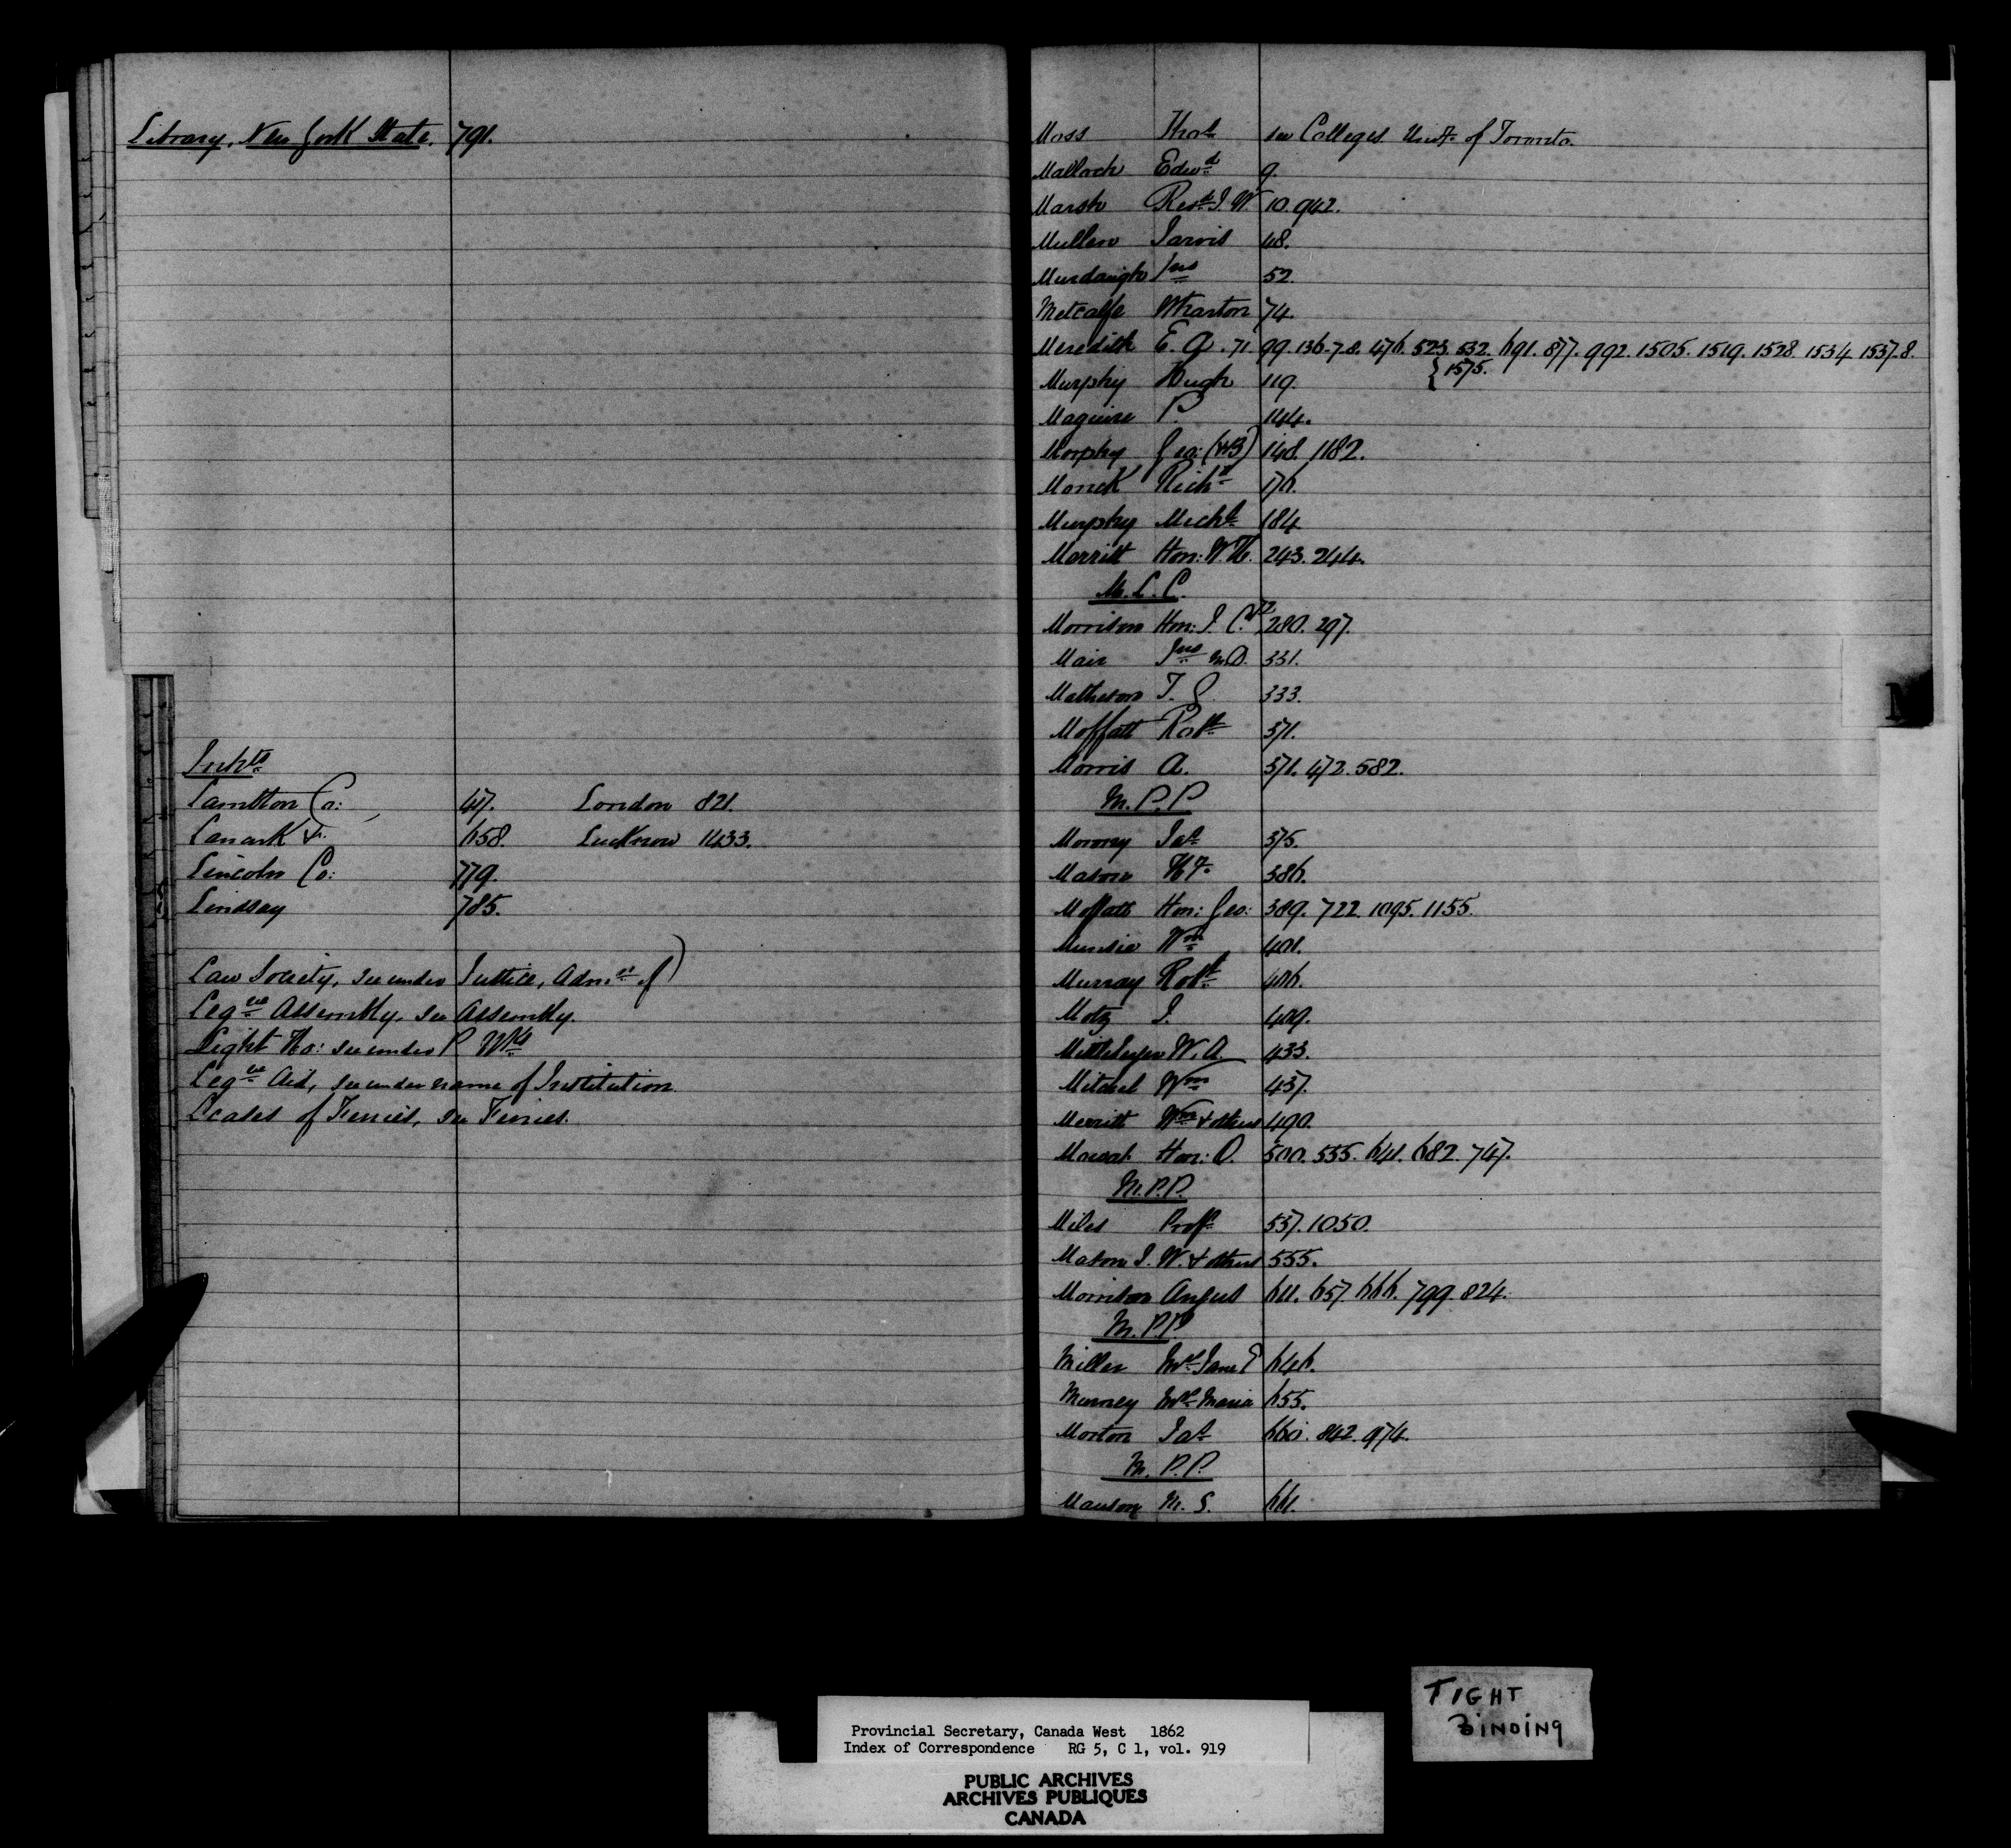 Library, New York State. 791.
Inhts
Lambton Co: 47. London 821.
Lanark &. 658. Lucknow 1433.
Lincoln Co: 779.
Lindsay 785.
Law Society, see under Justice, Admn of)
Legve Assembly, see Assembly.
Light Ho: see under P Wks
Legve Aid, see under name of Institution
Leases of Ferries, see Ferries.
Moss Thos see Colleges Unity of Toronto.
Malloch Edwd 9.
Marsh Revd J. W. 10. 942.
Mullen Jarvis 48.
Murdaugh Jno 52.
Metcalfe Wharton 74.
Meredith E. A. 71 99. 136-7.8. 476. 523. 532. 691. 877. 992. 1505. 1519. 1528. 1534. 1537.8.
{1575.
Murphy Hugh 119.
Maguire P. 144.
Morphy Geo: (WB) 148. 1182.
Monck Richd 176.
Murphy Michl 184
Merritt Hon: W. H. 243. 244.
M. L. C.
Morrison Hon: J. C. 280. 297.
Mair Jno M.D. 331.
Matheson T. G. 333.
Moffatt Robt 371.
Morris A. 371. 472. 582.
M. P. P
Morony Jas 375.
Mason Hy 386.
Moffatt Hon: Geo: 389. 722. 1095. 1155.
Munsie Wm 401.
Murray Robt 406.
Motz J. 409.
Mittleberger W. A. 433.
Mitchel Wm 437.
Merritt Wm & others 490.
Mowat Hon: O. 500. 535. 641. 682. 747.
M.P.P.
Miles Profr 537. 1050.
Mason J. W. & others 555.
Morrison Angus 611. 657. 666. 799. 824.
M. P.P
Miller Mrs Jane E 646.
Murney Mrs Maria 655.
Morton Jas 660. 842. 974.
M. P. P.
Manson M. S. 661.
M
Provincial Secretary, Canada West 1862
Index of Correspondence RG 5, C 1, vol. 919
PUBLIC ARCHIVES
ARCHIVES PUBLIQUES
CANADA
TIGHT
BINDING